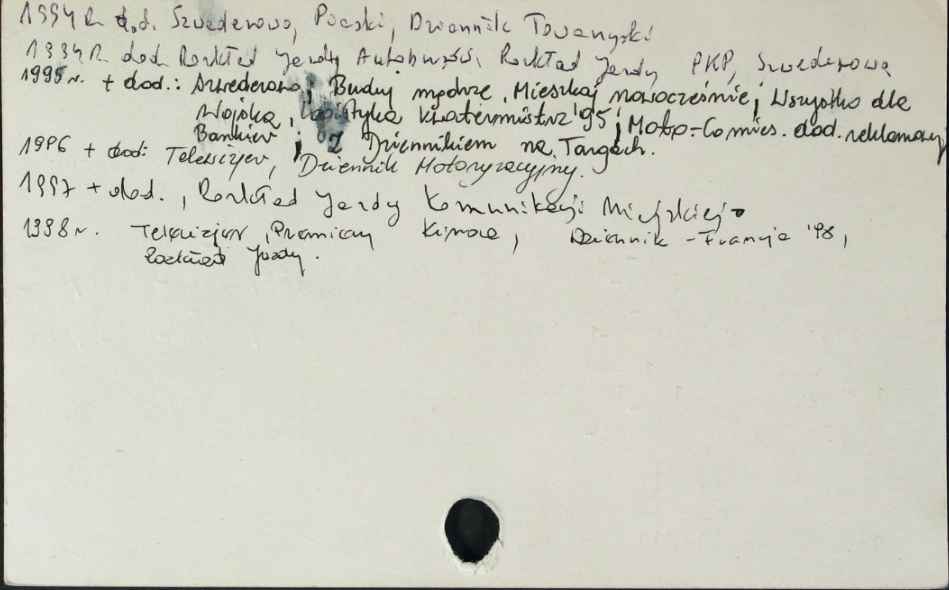 1994 R. dod. Szwederowo, Piaski, Dziennik Towarzyski
1994 R. dod. Rozkład Jazdy Autobusów, Rozkład Jazdy PKP, Szwederowo
1995 r. + dod.: Szwederowo; Buduj mądrze, Mieszkaj nowocześnie; Wszystko dla
Wojska, Logistyka Kwatermistrz '95; Moto-Comies. dod. reklamowy
Bankier; Z Dziennikiem na Targach.
1996 + dod: Telewizjer, Dziennik Motoryzacyjny.
1997 + dod., Rozkład Jazdy Komunikacji Miejskiej
1998 r. Telewizjer, Premiery Kinowe, Dziennik - Francja '98,
Rozkład Jazdy.